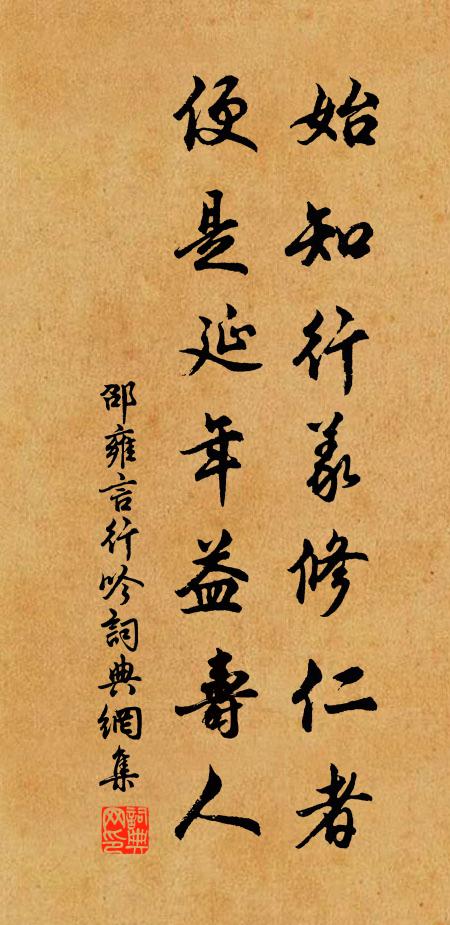 始知行義修仁者
便是延年益壽人
邵雍言行吟詞典網集
詞典網印